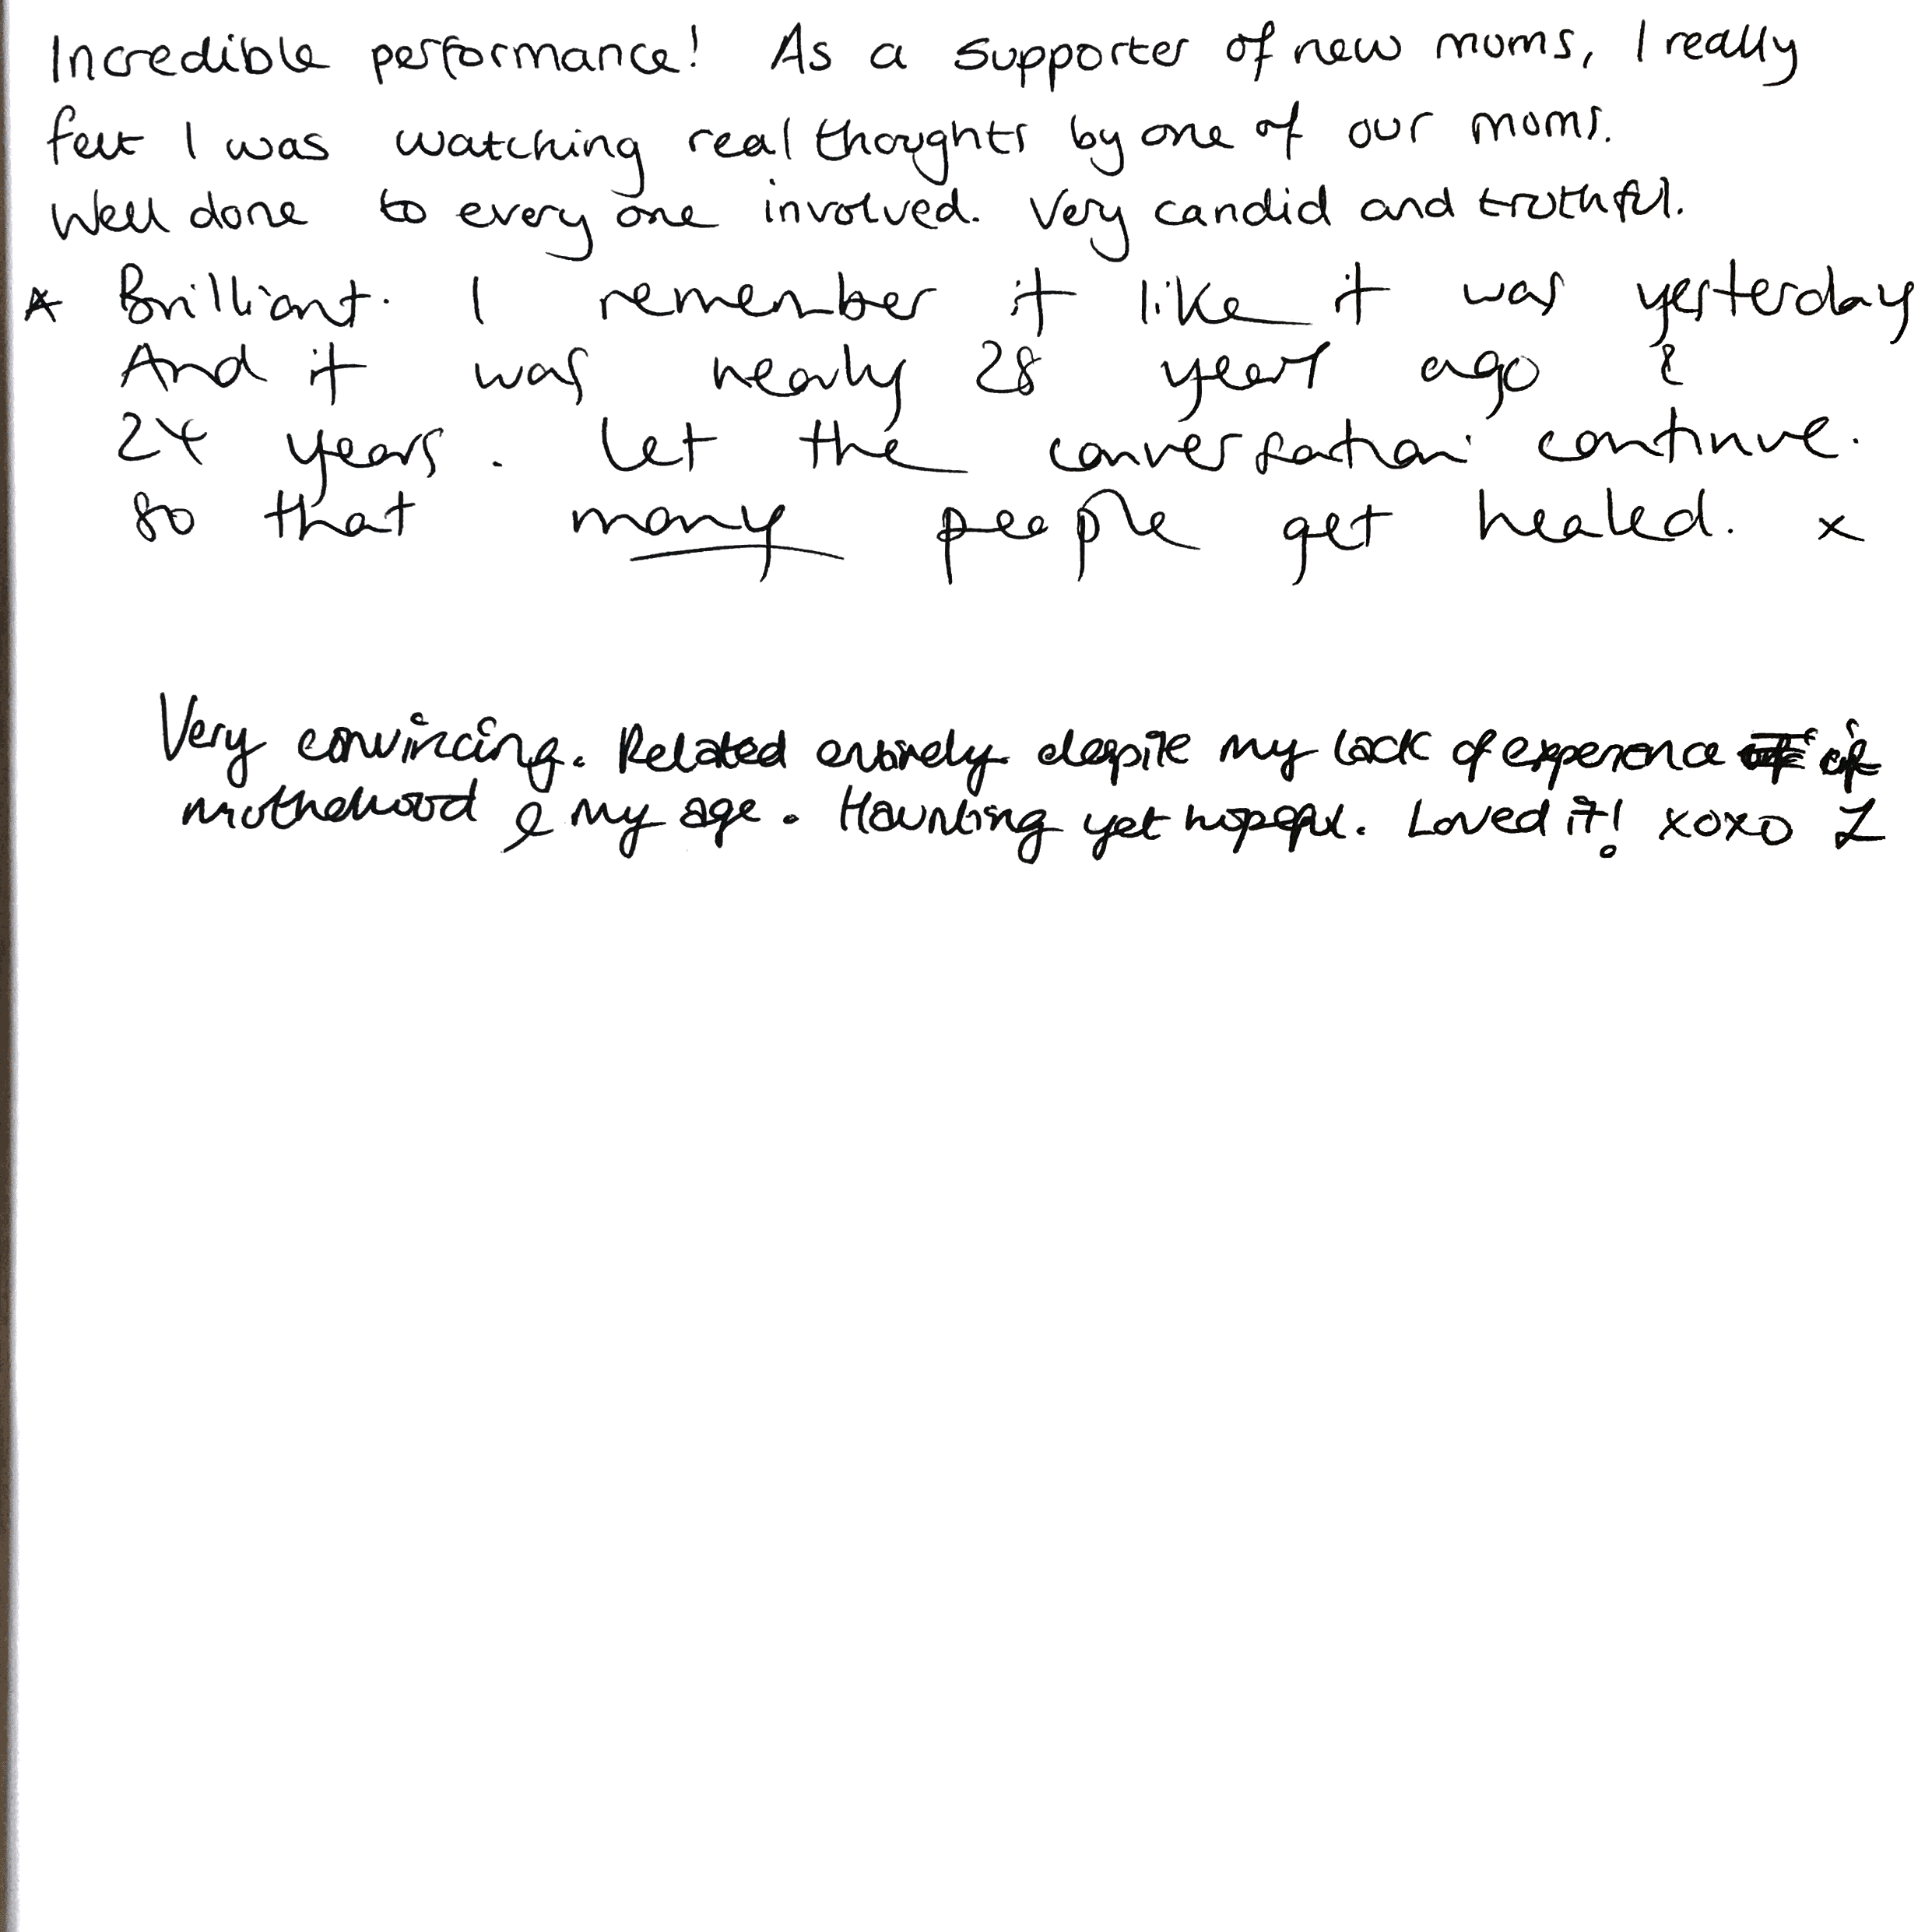 Incredible performance! As a supporter of new mums, I really
felt I was watching real thoughts by one of our mums.
Well done to every one involved. Very candid and truthful.
* Brilliant. I remember it like it was yesterday
And it was nearly 28 years ago &
24 years. Let the conversation continue.
So that many people get healed. x
Very convincing. Related entirely despite my lack of experience of
motherhood & my age. Haunting yet hopeful. Loved it! xoxo L